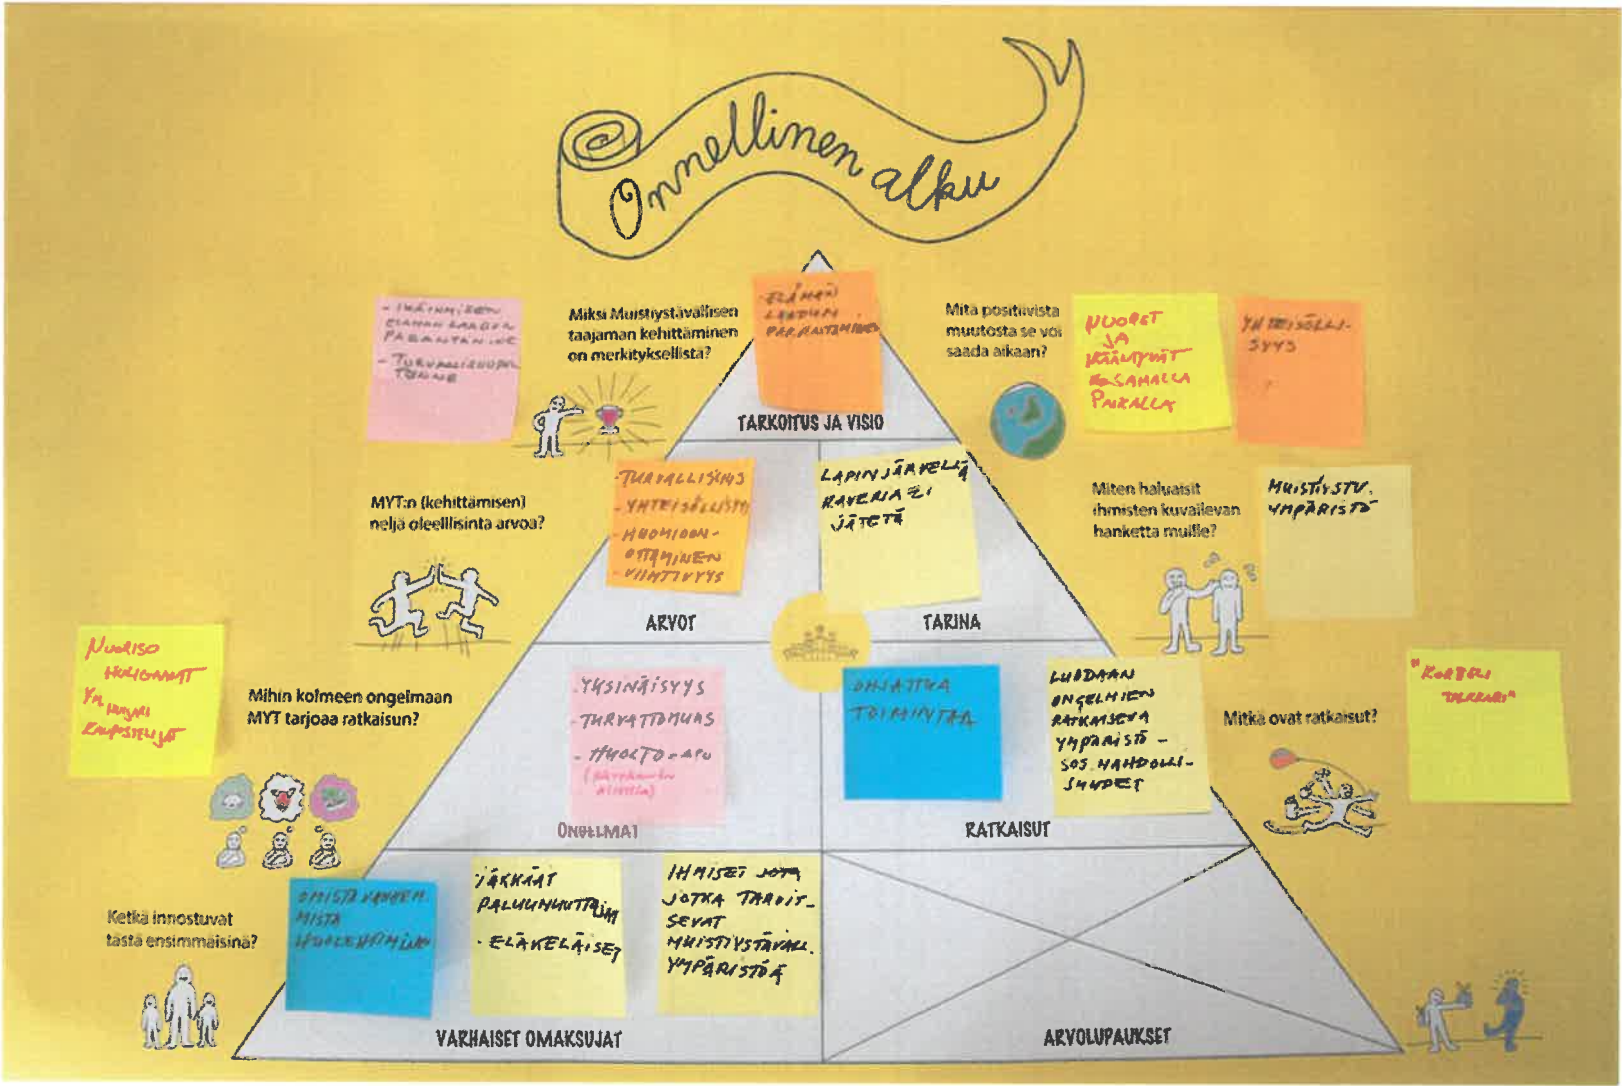 Onnellinen alku
- IKÄIHMISEN
ELÄMÄN LAADUN
PARANTAMINE
- TURVALLISUUDEN
TUNNE
Miksi Muistiystävällisen
taajaman kehittäminen
on merkityksellistä?
- ELÄMÄN
LAADUN
PARANTAMINEN
TARKOITUS JA VISIO
Mitä positiivista
muutosta se voi
saada aikaan?
NUORET
JA
IKÄÄNTYVÄT
SAMALLA
PAIKALLA
YHTEISÖLLI-
SYYS
MYT:n (kehittämisen)
neljä oleelllisinta arvoa?
- TURVALLISUUS
- YHTEISÖLLISYYS
- HUOMIOON-
OTTAMINEN
- VIIHTIVYYS
ARVOT
LAPINJÄRVELLÄ
KAVERIA EI
JÄTETÄ
TARINA
Miten haluaisit
ihmisten kuvailevan
hanketta muille?
MUISTIYSTV.
YMPÄRISTÖ
NUORISO
HULIGAANIT
YM
HUUMEKAUPUSTELIJAT
Mihin kolmeen ongelmaan
MYT tarjoaa ratkaisun?
- YKSINÄISYYS
- TURVATTOMUUS
- HUOLTO-APU
ONGELMAT
OHJATTUA
TOIMINTAA
LUODAAN
ONGELMIEN
RATKAISEVA
YMPÄRISTÖ -
SOS. MAHDOLLI-
SUUDET
RATKAISUT
Mitkä ovat ratkaisut?
"KORTTELI
TALKKARI"
Ketkä innostuvat
tästä ensimmäisinä?
OMISTA VANHEM
MISTA
HUOLEHTIMINEN
IÄKKÄÄT
PALUUMUUTTAJAT
- ELÄKELÄISET
IHMISET JOTA
JOTKA TARVIT-
SEVAT
MUISTIYSTÄVÄLL.
YMPÄRISTÖÄ
VARHAISET OMAKSUJAT
ARVOLUPAUKSET